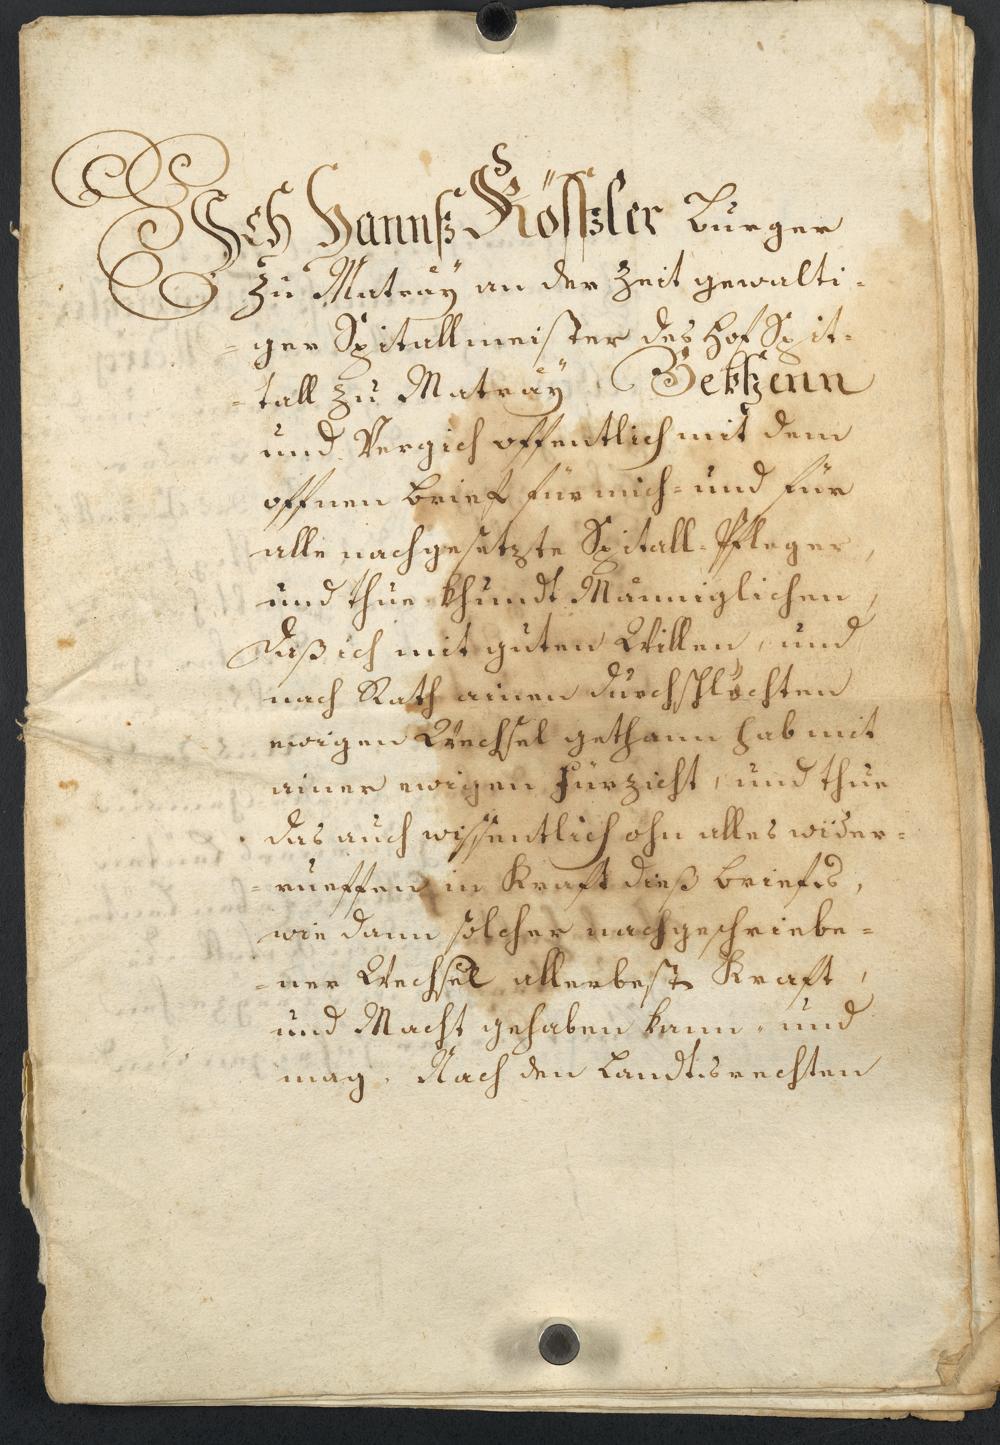 Ich Hannß Kößler burger
zu Matraÿ an der Zeit gewalti-
=ger Spitallmeister des hof Spit-
=tall zu Matraÿ Bekhenn
und Vergich offentlich mit dem
offnen brief für mich= und für
alle nachgesetzte Spitall=Pfleger,
und thue khundt Männiglichen,
daß ich mit guten Willen, und
nach Rath ainen durchschlächten
ewigen Wechsel gethann hab mit
ainer ewigen Fürzicht, und thue
das auch wissentlich ohn alles wider-
=rueffen in Kraft dieß briefs,
wie dann solcher nachgeschriebe=
=ner Wechsel allerbest Kraft,
und Macht gehaben kann, und
mag. Nach den Landtsrechten